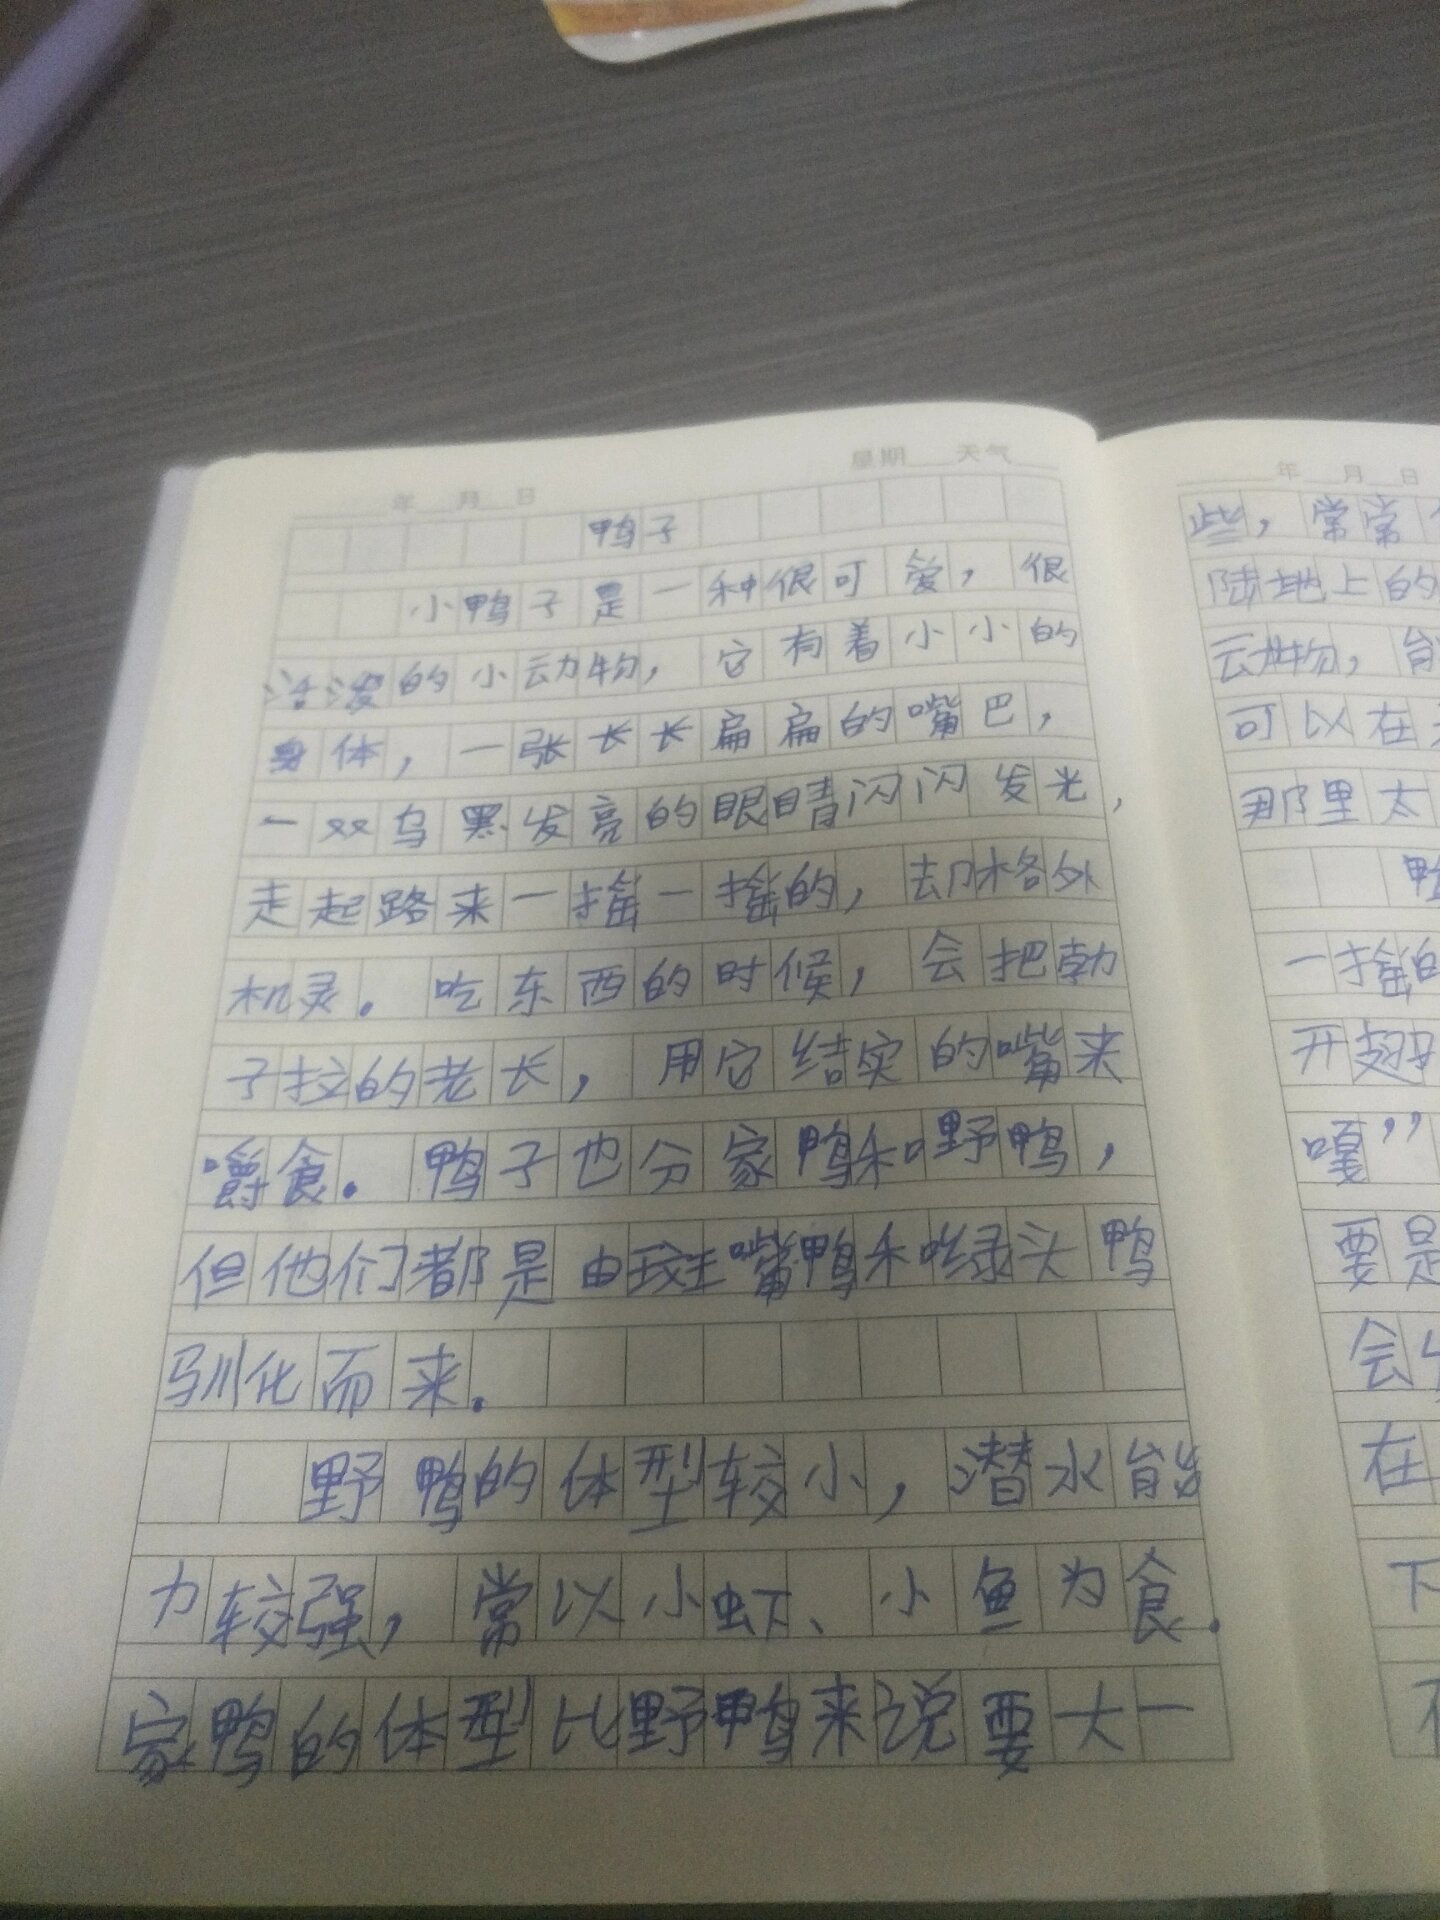 年 月 日 星期 天气
鸭子
小鸭子是一种很可爱，很
活泼的小动物，它有着小小的
身体，一张长长扁扁的嘴巴，
一双乌黑发亮的眼睛闪闪发光，
走起路来一摇一摇的，却格外
机灵。吃东西的时候，会把勃
子拉的老长，用它结实的嘴来
嚼食。鸭子也分家鸭和野鸭，
但他们都是由斑嘴鸭和绿头鸭
驯化而来。
野鸭的体型较小，潜水能
力较强，常以小虾、小鱼为食。
家鸭的体型比野鸭来说要大一
年 月 日
些，常常
陆地上的
动物，能
可以在
那里太
鸭
一摇的
开翅
嘎”
要是
会
在
下